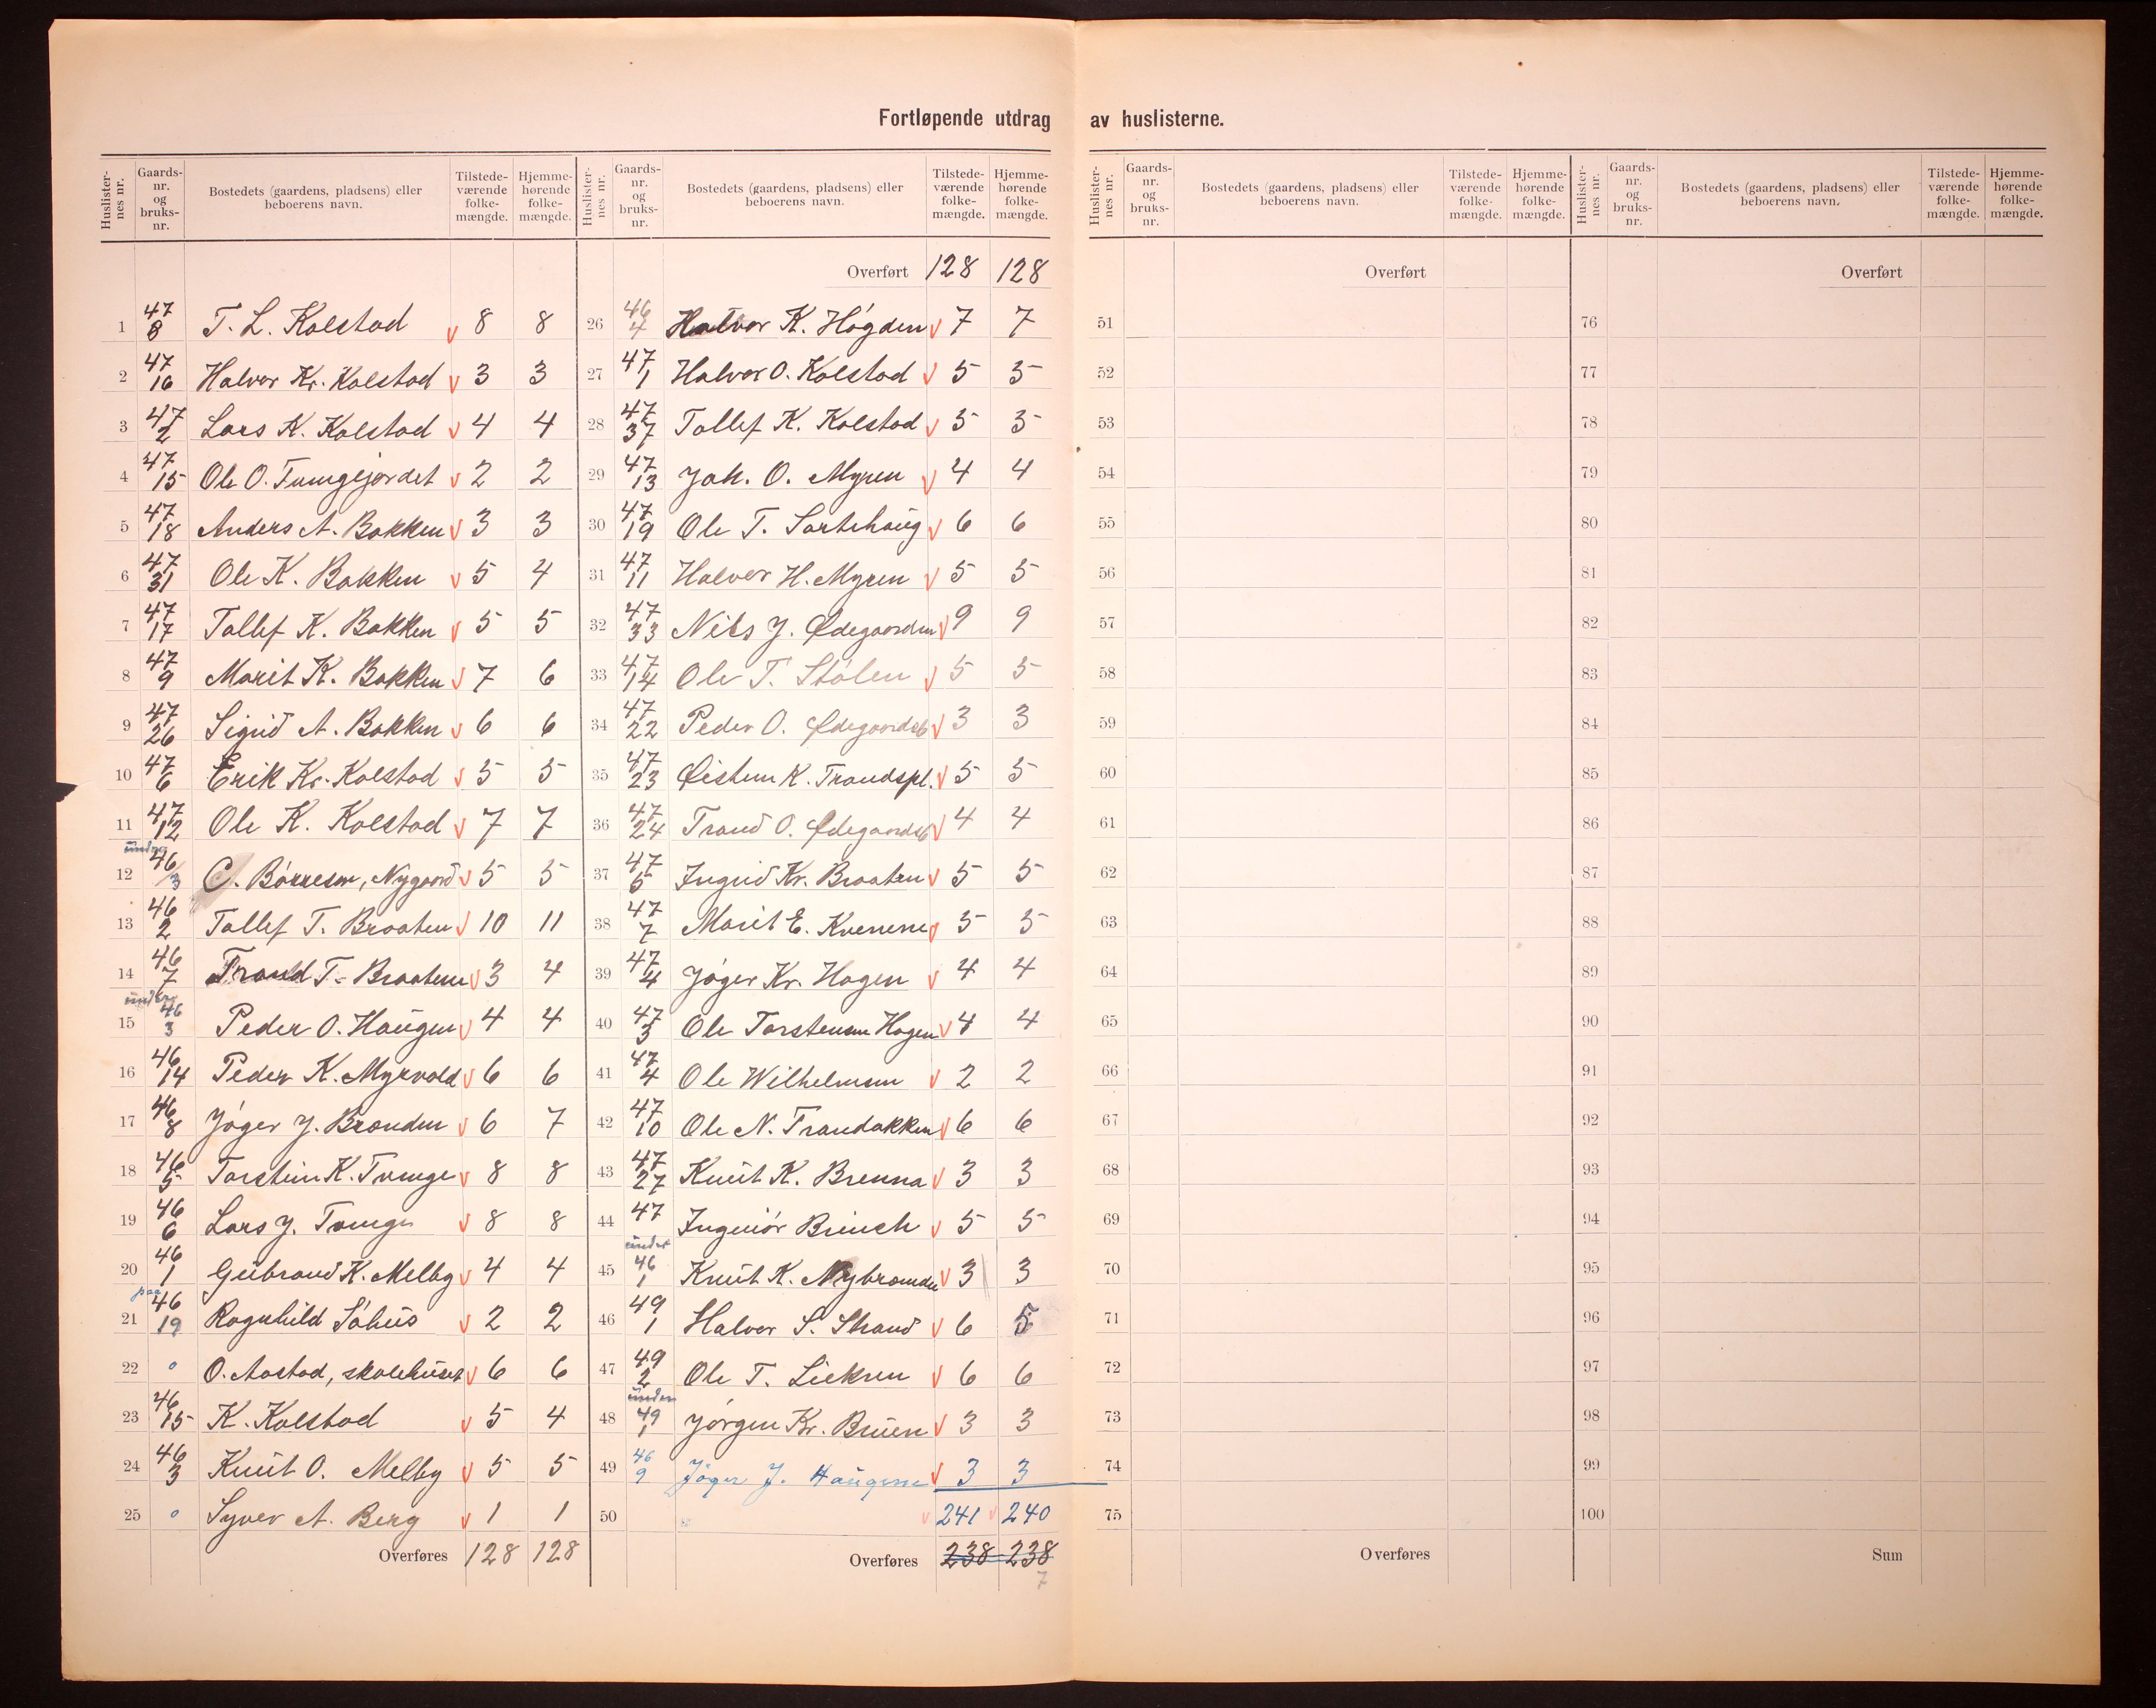 Fortløpende utdrag av huslisterne.
Huslister-nes nr. Gaards-nr. og bruks-nr. Bostedets (gaardens, pladsens) eller beboerens navn. Tilstede-værende folke-mængde. Hjemme-hørende folke-mængde.
1 47/8 T. L. Kolstad v 8 8
2 47/16 Halvor Kr. Kolstad v 3 3
3 47/2 Lars K. Kolstad v 4 4
4 47/15 Ole O. Tvengejordet v 2 2
5 47/18 Anders A. Bakken v 3 3
6 47/31 Ole K. Bakken v 5 4
7 47/17 Tollef K. Bakken v 5 5
8 47/9 Marit K. Bakken v 7 6
9 47/26 Sigrid A. Bakken v 6 6
10 47/6 Erik Kr. Kolstad v 5 5
11 47/12 Ole K. Kolstad v 7 7
12 under 46/3 C. Børresen, Nygaard v 5 5
13 46/2 Tollef T. Braaten v 10 11
14 46/7 Trond T. Braaten v 3 4
15 under 46/3 Peder O. Haugen v 4 4
16 46/14 Peder K. Myrvold v 6 6
17 46/8 Jøger J. Brenden v 6 7
18 46/5 Torstein K. Tvenge v 8 8
19 46/6 Lars J. Tvenge v 8 8
20 46/1 Gulbrand K. Melby v 4 4
21 paa 46/19 Ragnhild Søhus v 2 2
22 " O. Aastad, skolehuset v 6 6
23 46/15 K. Kolstad v 5 4
24 46/3 Knut O. Melby v 5 5
25 " Syver A. Berg v 1 1
Overføres 128 128
Huslister-nes nr. Gaards-nr. og bruks-nr. Bostedets (gaardens, pladsens) eller beboerens navn. Tilstede-værende folke-mængde. Hjemme-hørende folke-mængde.
Overført 128 128
26 46/4 Halvor K. Høgden v 7 7
27 47/1 Halvor O. Kolstad v 5 5
28 47/37 Tollef K. Kolstad v 5 5
29 47/13 Joh. O. Myren v 4 4
30 47/19 Ole T. Sortehaug v 6 6
31 47/11 Halvor H. Myren v 5 5
32 47/33 Nils J. Ødegaarden v 9 9
33 47/14 Ole T. Stølen v 5 5
34 47/22 Peder O. Ødegaardsb v 3 3
35 47/23 Øisten K. Trondspl. v 5 5
36 47/24 Trond O. Ødegaardsb v 4 4
37 47/5 Ingrid Kr. Braaten v 5 5
38 47/7 Marit E. Kvernene v 5 5
39 47/4 Jøger Kr. Hagen v 4 4
40 47/3 Ole Torstensen Hagen v 4 4
41 47/4 Ole Wilhelmsen v 2 2
42 47/10 Ole N. Trondakken v 6 6
43 47/27 Knut K. Brenna v 3 3
44 47 Ingeniør Brinch v 5 5
45 under 46/1 Knut K. Nybraaten v 3 3
46 49/1 Halvor S. Strand v 6 5
47 49/2 Ole T. Lieksen v 6 6
48 under 49/1 Jørgen Kr. Bruen v 3 3
49 46/9 Jøger J. Haugen v 3 3
50 v 241 v 240
Overføres 238 238
7
Huslister-nes nr. Gaards-nr. og bruks-nr. Bostedets (gaardens, pladsens) eller beboerens navn. Tilstede-værende folke-mængde. Hjemme-hørende folke-mængde.
Overført
51
52
53
54
55
56
57
58
59
60
61
62
63
64
65
66
67
68
69
70
71
72
73
74
75
Overføres
Huslister-nes nr. Gaards-nr. og bruks-nr. Bostedets (gaardens, pladsens) eller beboerens navn. Tilstede-værende folke-mængde. Hjemme-hørende folke-mængde.
Overført
76
77
78
79
80
81
82
83
84
85
86
87
88
89
90
91
92
93
94
95
96
97
98
99
100
Sum